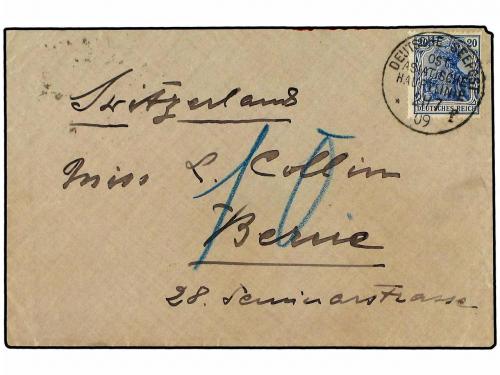 DEUTSCHE SEEPOST
OST-
ASIATISCHE
HAUPTLINIE
09
20
DEUTSCHES REICH
Switzerland
Miss L. Collin
10
Berne
28. Seminarstrasse